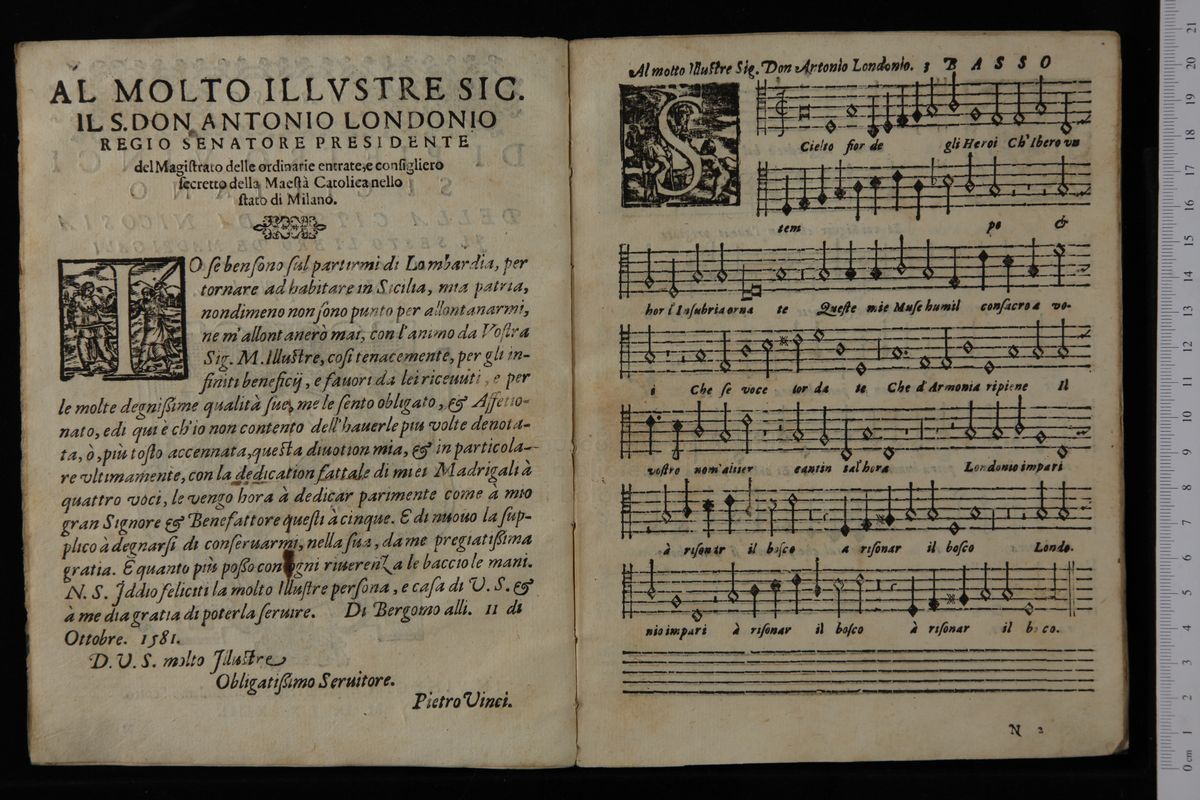 AL MOLTO ILLVSTRE SIG.
IL S. DON ANTONIO LONDONIO
REGIO SENATORE PRESIDENTE
del Magistrato delle ordinarie entrate, e consigliero
secretto della Maestà Catolica nello
stato di Milano.
IO se ben sono sul partirmi di Lombardia, per
tornare ad habitare in Sicilia, mia patria,
nondimeno non sono punto per allontanarmi,
ne m'allontanerò mai, con l'animo da Vostra
Sig. M. Illustre, così tenacemente, per gli in-
finiti beneficij, e fauori da lei riceuuti, e per
le molte degnißime qualità sue, me le sento obligato, & Affetio-
nato, e di qui è ch'io non contento dell'hauerle piu volte denota-
ta, ò, più tosto accennata, questa diuotion mia, & in particola-
re vltimamente, con la dedication fattale di miei Madrigali à
quattro voci, le vengo hora à dedicar parimente come à mio
gran Signore & Benefattore questi à cinque. E di nuouo la sup-
plico à degnarsi di conseruarmi, nella sua, da me pregiatißima
gratia. E quanto più poßo con ogni riuerenza le baccio le mani.
N. S. Iddio feliciti la molto Illustre persona, e casa di V. S. &
à me dia gratia di poterla seruire. Di Bergomo alli. 11 di
Ottobre. 1581.
D. V. S. molto Illustre
Obligatißimo Seruitore.
Pietro Vinci.
Al molto Illustre Sig. Don Antonio Londonio. 3 BASSO
SCielto fior de gli Heroi Ch'Ibero vn
tem po &
hor l'Insubria orna te Queste mie Muse humil consacro a vo-
i Che se voce cor da te Che d'Armonia ripiene Il
vostro nom'altier cantin tal'hora Londonio impari
à risonar il bosco a risonar il bosco Londo.
nio impari à risonar il bosco à risonar il bosco.
N 2